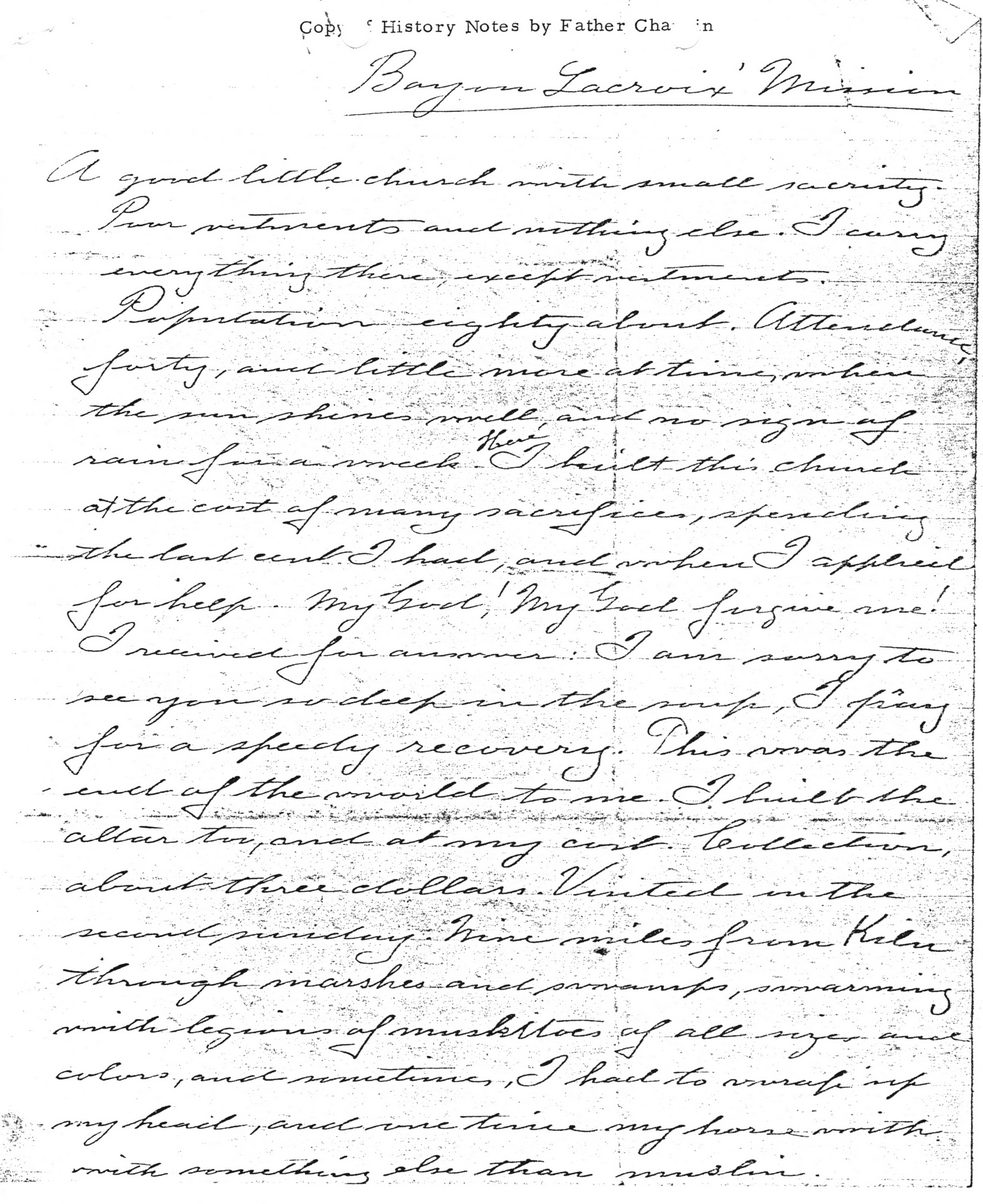 Copy of History Notes by Father Cha in
Bayou Lacroix' Mission
A good little church with small sacristy.
Poor vestments and nothing else. I carry
everything there, except vestments.
Population eighty about. Attendance,
forty, and little more at time, when
the sun shines well and no sign of
rain for a week. Here, I built this church
at the cost of many sacrifices, spending
the last cent I had, and when I applied
for help. My God,! My God forgive me!
I received for answer: I am sorry to
see you so deep in the soup, I pray
for a speedy recovery. This was the
end of the world to me. I built the
altar too, and at my cost. Collection,
about three dollars. Visited on the
second sunday. Nine miles from Kiln
through marshes and swamps, swarming
with legions of muskittoes of all sizes and
colors, and sometimes, I had to wrap up
my head, and one time my horse with
with something else than muslin.